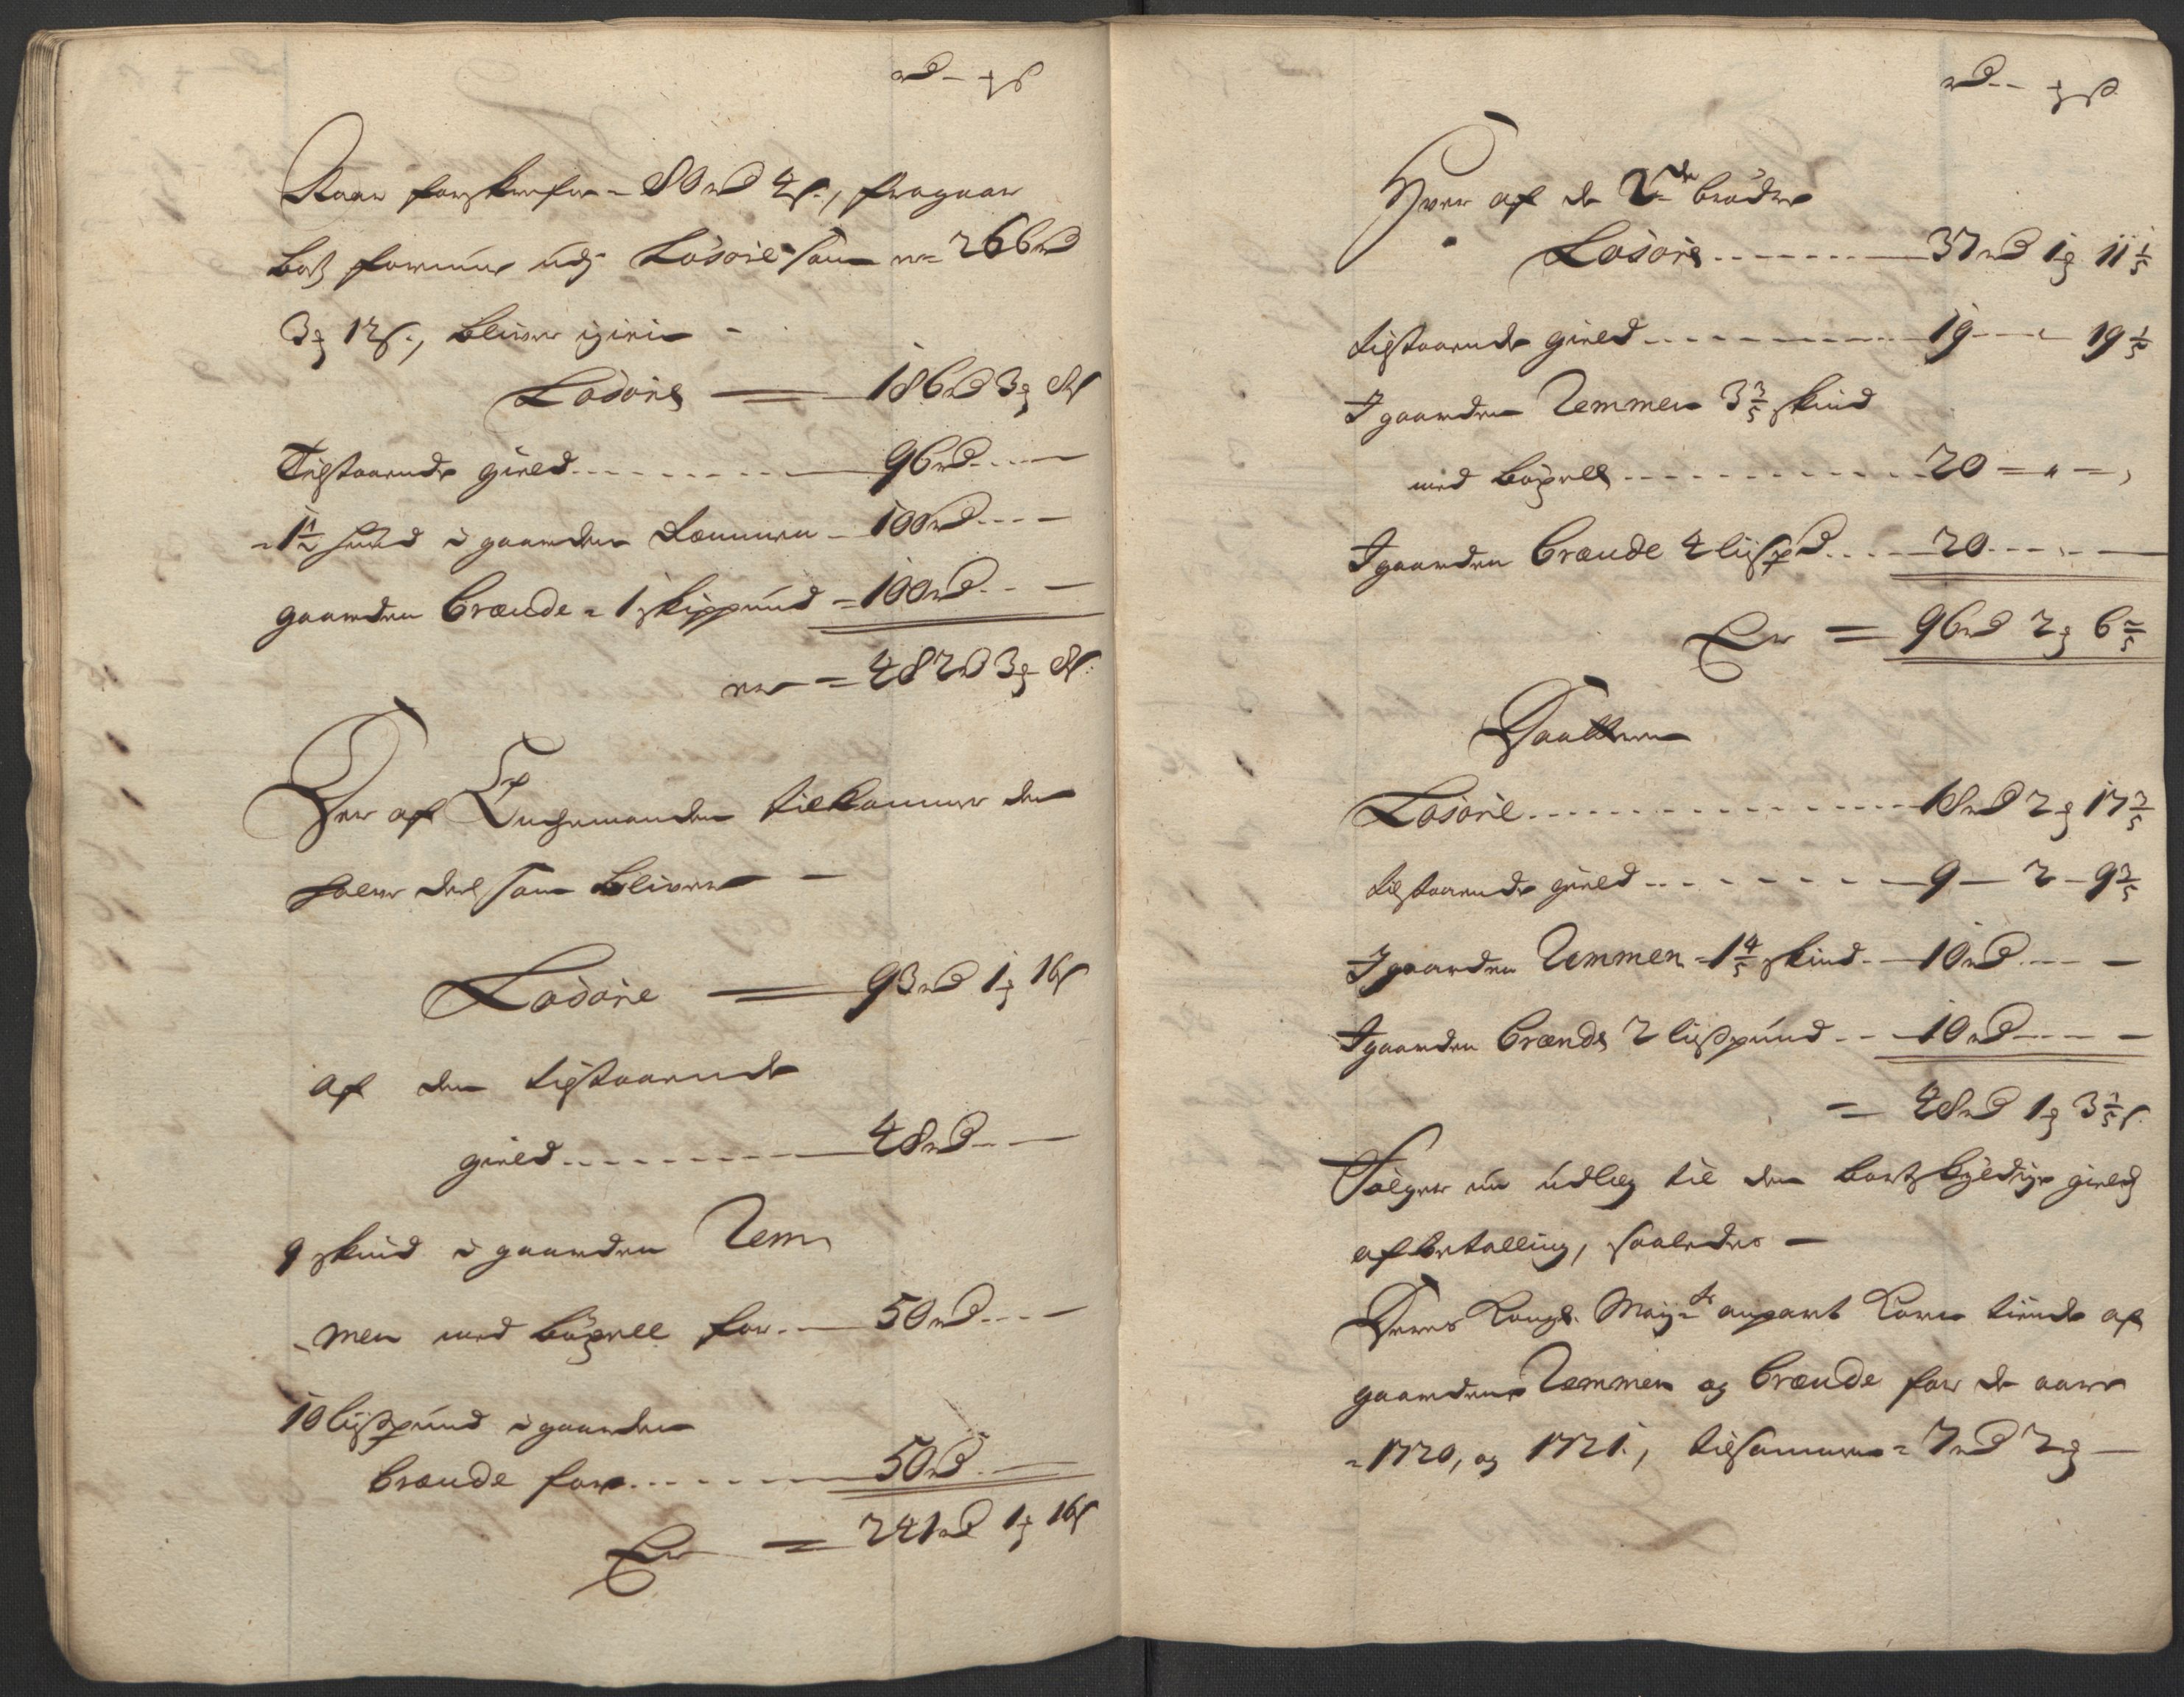 rd – ƶ ß
Naar forskrefne 80 rd 4 s., fragaar
boets formue udj Løsøre som er 266 rd
3ƶ 12 s., bliver igien –
Løsøre = 186 rd 3ƶ 8 s
Tilstaaende gield ......... 96 rd ....
1½ hud i gaarden Læmmen – 100 rd ....
gaarden Brænde = 1 skippund = 100 rd ...
er = 482 rd 3ƶ 8 s.
Der af Enchemanden tilkommer den
halve deel som bliver –
Løsøre = 93 rd 1ƶ 16 s
af den tilstaaende
gield ......... 48 rd ...
9 skind i gaarden Lem
men med bøxell for .. 50 rd ....
10 lißpund i gaarden
Brænde for ...... 50 rd ...
Er = 241 rd 1ƶ 16 s
rd -- ƶ ß
Hver af de 2de brødre
Løsøre ....... 37 rd 1ƶ 11 1/5
tilstaaende gield ......... 19 --- 19 1/5
I gaarden Lemmen 3 3/5 skind
med bøxell ......... 20 – " –
I gaarden Brænde 4 lißpd .... 20 ....
Er = 96 rd 2ƶ 6 2/5
Daatteren
Løsøre ......... 18 rd 2ƶ 17 3/5
tilstaaende gield ....... 9 – 2 – 9 3/5
I gaarden Lemmen = 1 4/5 skind .. 10 rd ...
I gaarden Brænde 2 lißpund .. 10 rd ....
= 48 rd 1ƶ 3 1/5 s.
Følger nu udlæg til den bortskyldige gields
afbetalling, saaledes –
Deres Kongl. Mayts anpart Korn tiende af
gaardene Lemmen og Brænde for de aar
1720, og 1721, tilsammen = 7 rd 2ƶ –